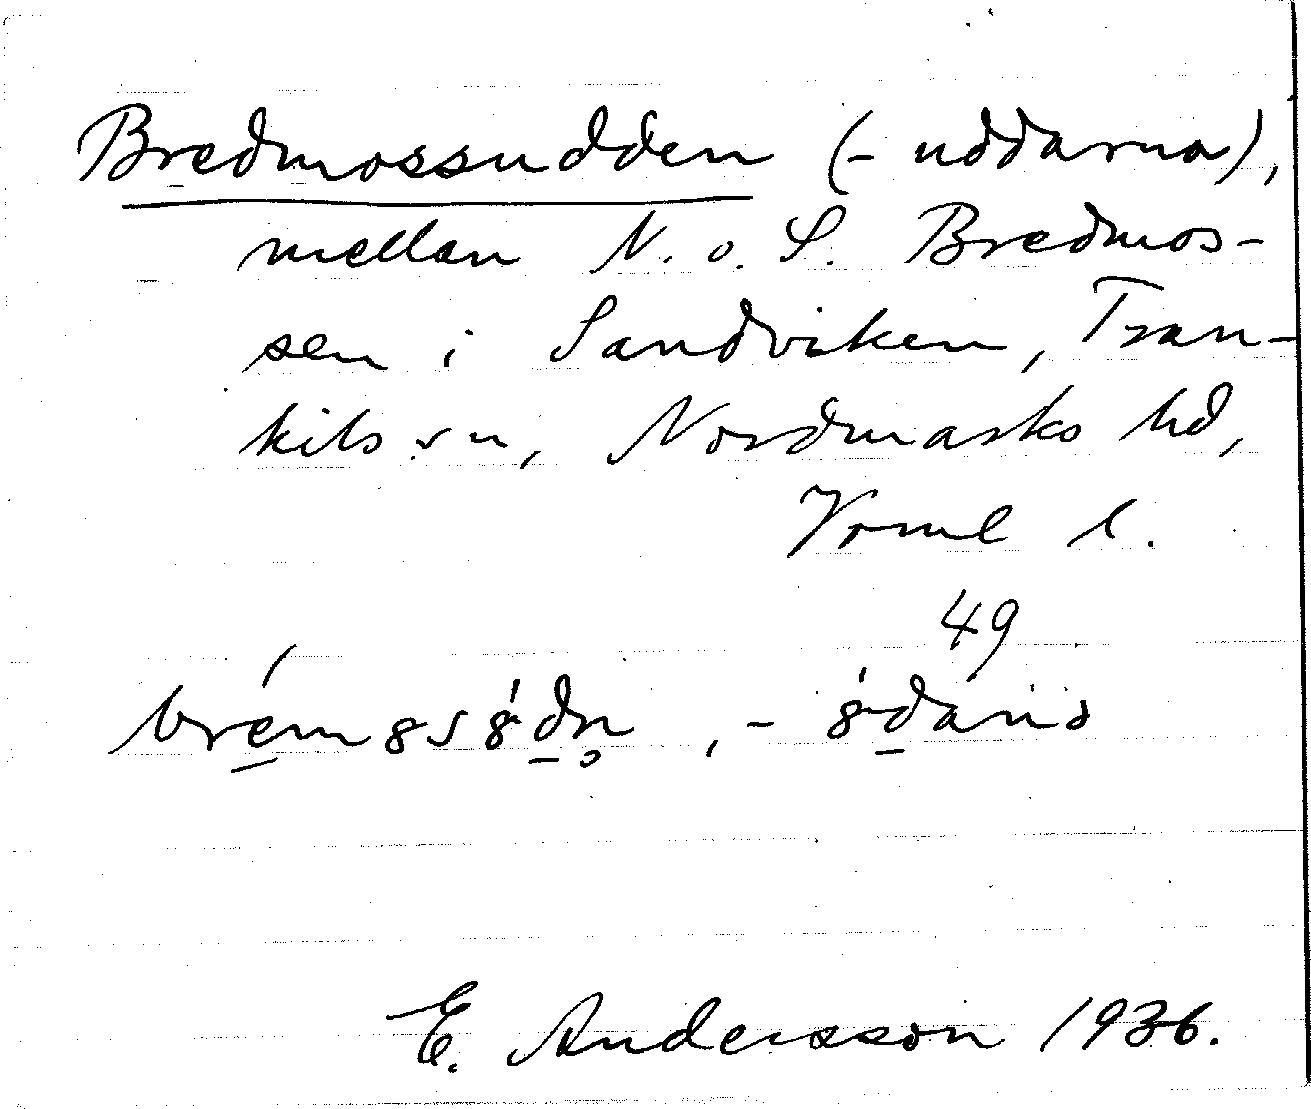 Bredmossudden (-uddarna),
mellan N. o. S. Bredmos-
sen i Sandviken, Tran-
kils sn, Nordmarks hd,
Vrml l.
49
E. Andersson 1936.